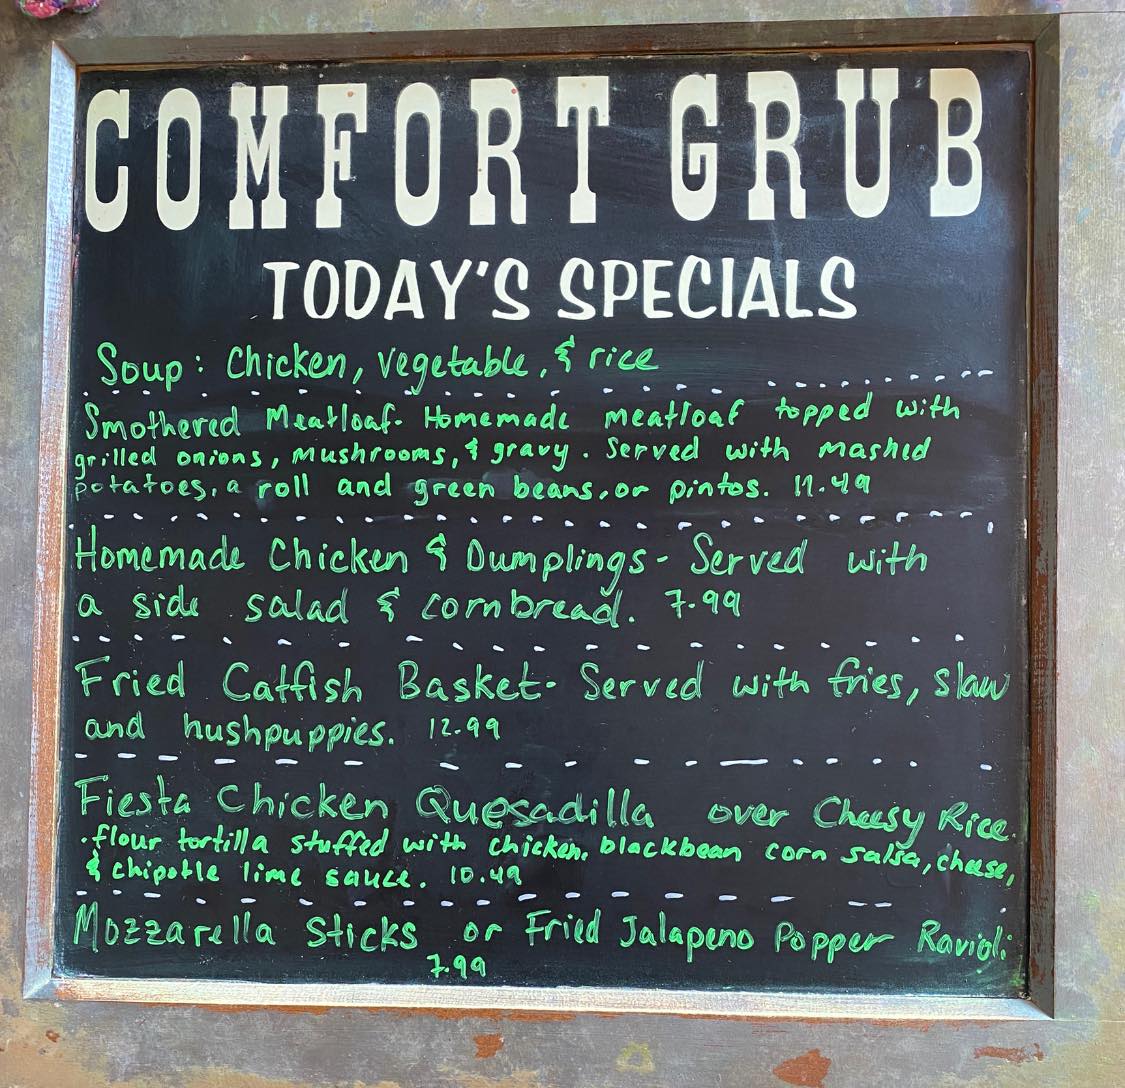 COMFORT GRUB
TODAY'S SPECIALS
Soup: Chicken, vegetable, & rice
Smothered Meatloaf- Homemade meatloaf topped with
grilled onions, mushrooms, & gravy. Served with mashed
potatoes, a roll and green beans, or pintos. 11.49
Homemade Chicken & Dumplings- Served with
a side salad & cornbread. 7.99
Fried Catfish Basket- Served with fries, slaw
and hushpuppies. 12.99
Fiesta Chicken Quesadilla over Cheesy Rice.
.flour tortilla stuffed with chicken, blackbean corn salsa, cheese,
& chipotle lime sauce. 10.49
Mozzarella Sticks or Fried Jalapeno Popper Ravioli
7.99